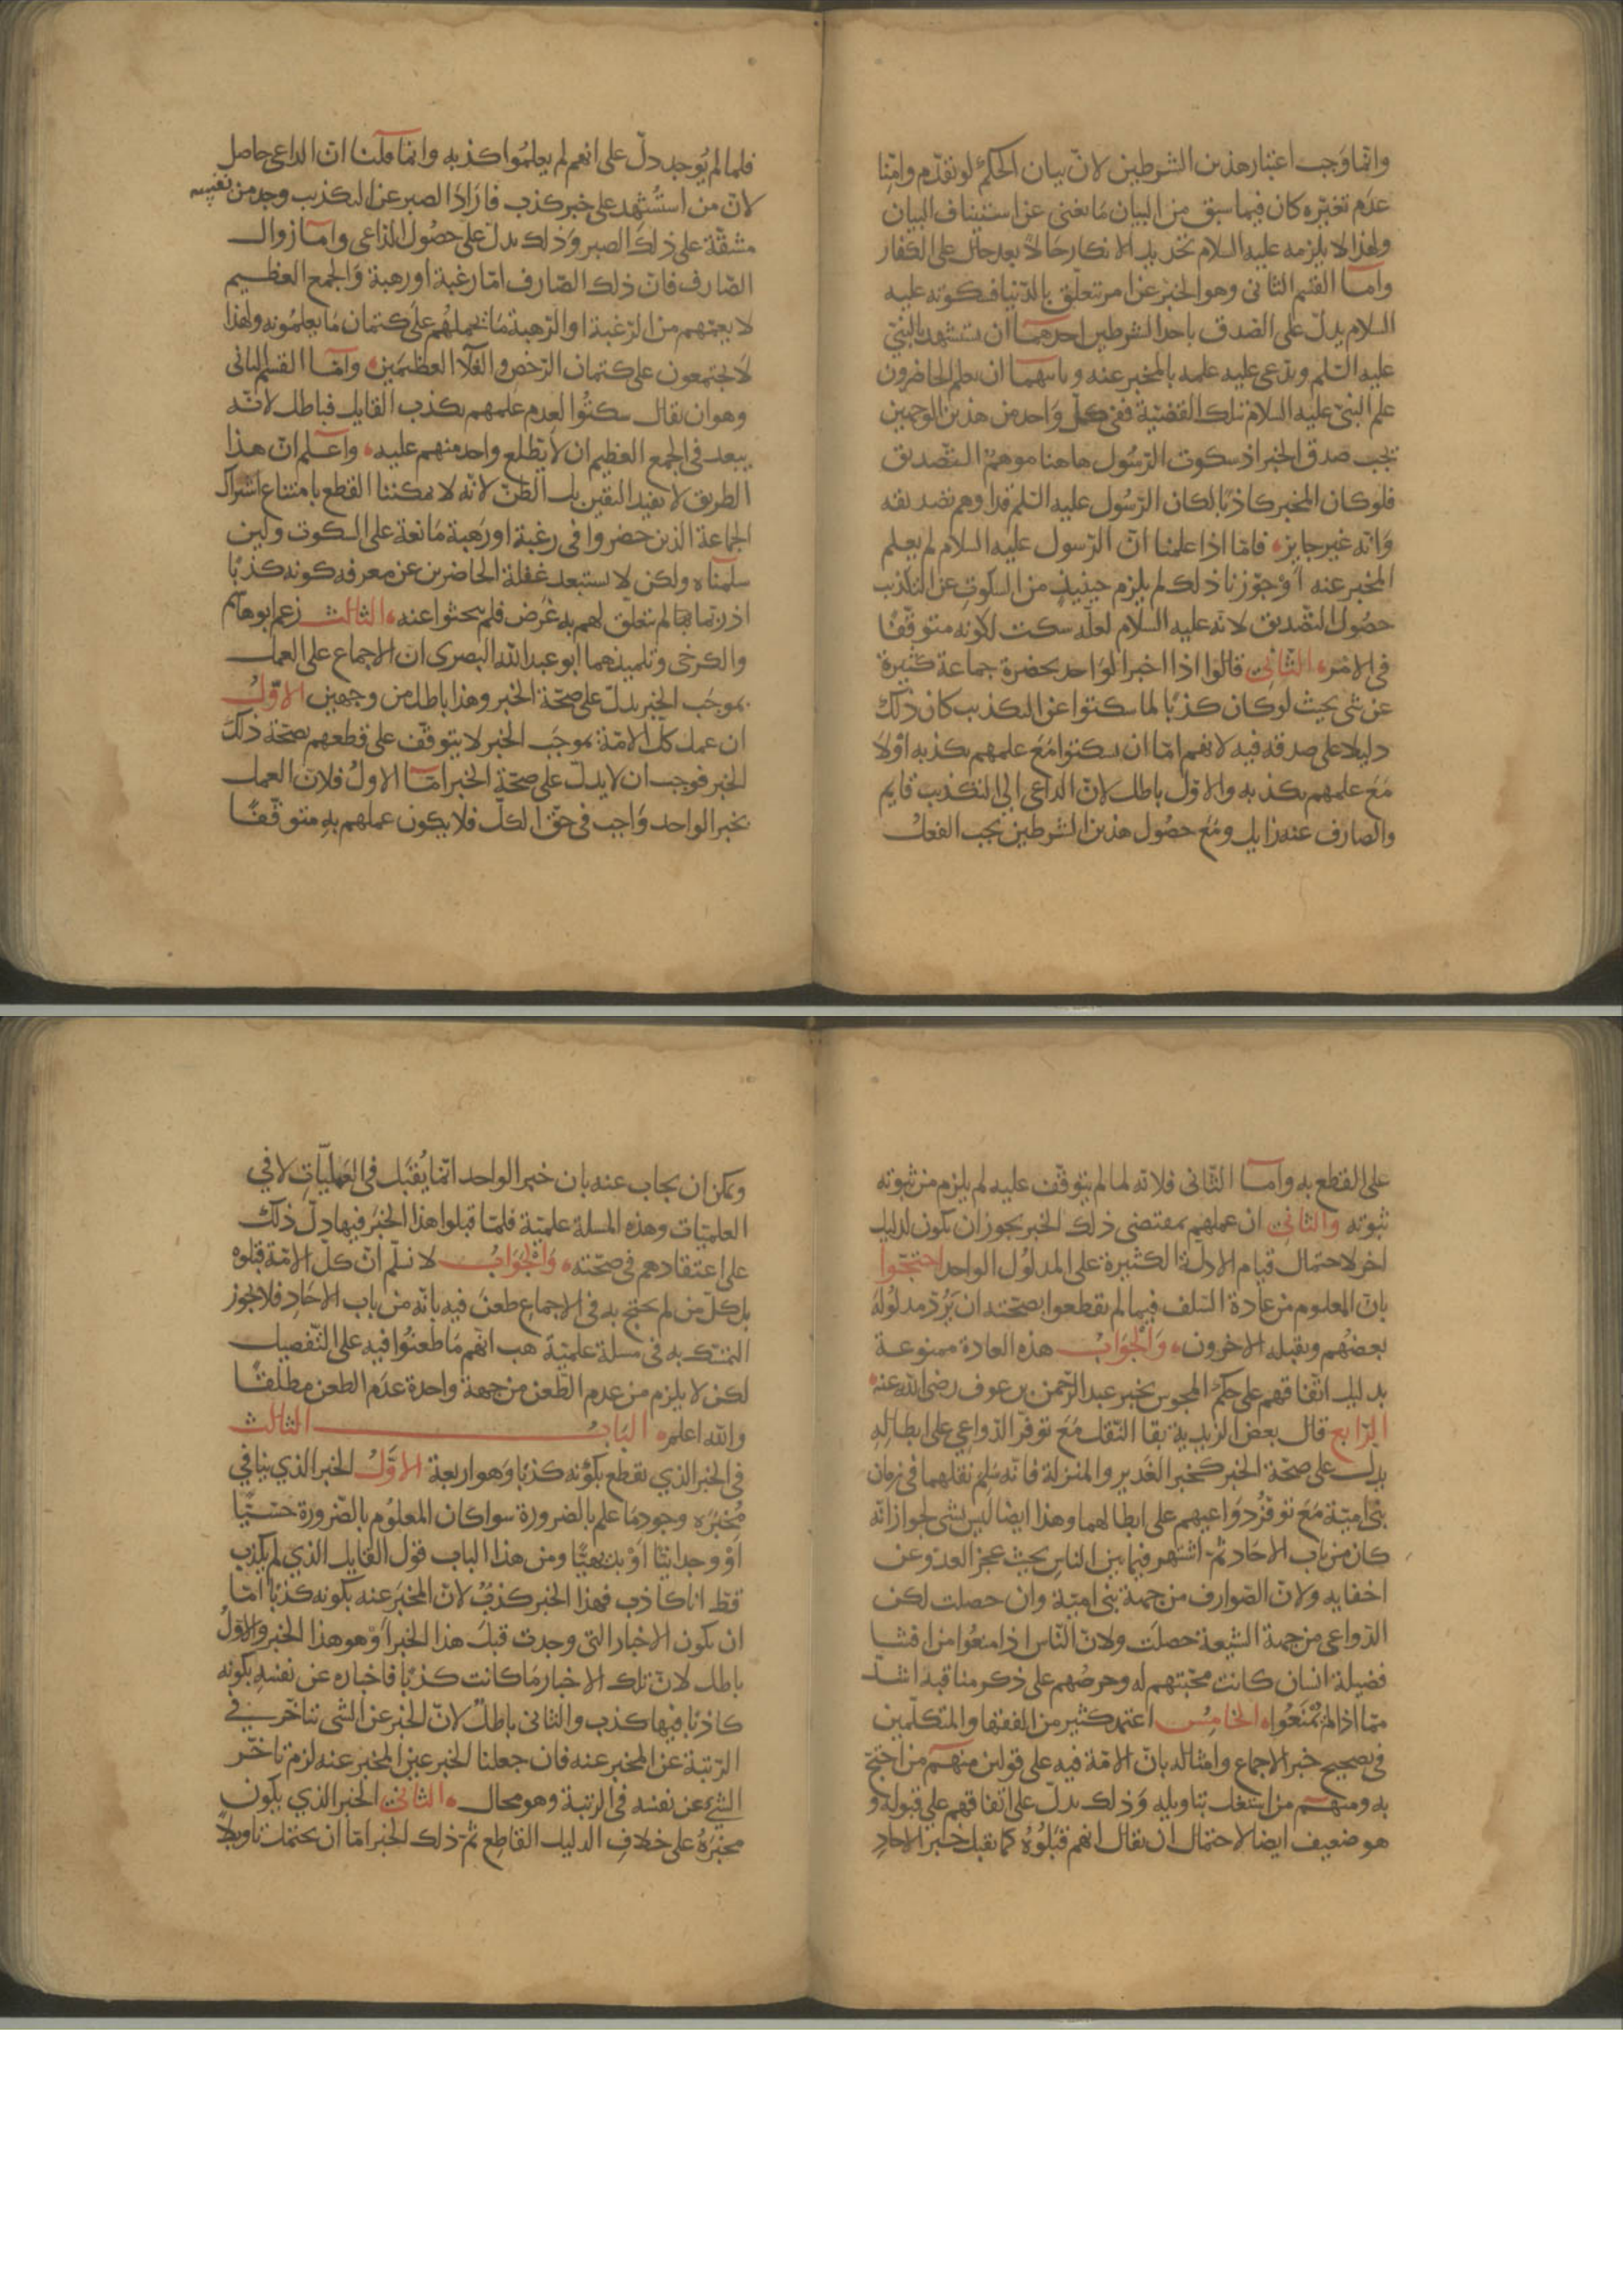 وانما وجب اعتبار هذين الشرطين لان بيان الحكم لو تقدم وامنا
عدم تغيره كان فيما سبق من البيان ما يغني عن استيناف البيان
ولهذا لا يلزمه عليه السلام تجديد الانكار حالا بعد حال على الكفار
وامــا القسم الثاني وهو الخبر عن امر يتعلق بالدنيا فسكوته عليه
السلام يدل على الصدق باحد الشرطين احدهما ان يستشهد بالنبي
عليه السلم ويدعى عليه علمه بالمخبر عنه وثانيهما ان يعلم الحاضرون
علم النبي عليه السلام بتلك القضية ففي كل واحد من هذين الوجهين
يجب صدق الخبر اذ سكوت الرسول هاهنا موهم التصديق
فلو كان المخبر كاذبا لكان الرسول عليه السلم قد اوهم تصديقه
وانه غير جايز فاما اذا علمنا ان الرسول عليه السلام لم يعلم
المخبر عنه او جوزنا ذلك لم يلزم حينيذ من السكوت عن التكذيب
حصول التصديق لانه عليه السلام لعله سكت لكونه متوقفا
في الامر الثاني قالوا اذا اخبر الواحد بحضرة جماعة كثيرة
عن شي بحيث لو كان كذبا لما سكتوا عن التكذيب كان ذلك
دليلا على صدقه فيه لانهم اما ان سكتوا مع علمهم بكذبه او لا
مع علمهم بكذبه والاول باطل لان الداعي الى التكذيب قايم
والصارف عنه زايل ومع حصول هذين الشرطين يجب الفعل
فلما لم يوجد دل على انهم لم يعلموا كذبه وانما قلنا ان الداعي حاصل
لان من استشهد على خبر كذب فاراد الصبر عن التكذيب وجد من نفسه
مشقة على ذلك الصبر وذلك يدل على حصول الداعي وامــا زوال
الصارف فان ذلك الصارف اما رغبة او رهبة والجمع العظيم
لا يعمهم من الرغبة او الرهبة ما يحملهم على كتمان ما يعلمونه ولهذا
لا يجتمعون على كتمان الرخص والغلا العظيمين وامــا القسم الثاني
وهو ان يقال سكتوا لعدم علمهم بكذب القايل فباطل لانه
يبعد في الجمع العظيم ان لا يطلع واحد منهم عليه واعلم ان هذا
الطريق لا يفيد اليقين بل الظن لانه لا يمكننا القطع بامتناع اشتراك
الجماعة الذين حضروا في رغبة او رهبة مانعة على السكوت ولين
سلمناه ولكن لا نستبعد غفلة الحاضرين عن معرفه كونه كذبا
اذ ربما لم يتعلق لهم به غرض فلم يبحثوا عنه الثالث زعم ابو هاشم
والكرخي وتلميذهما ابو عبد الله البصري ان الاجماع على العمل
بموجب الخبر يدل على صحة الخبر وهذا باطل من وجهين الاول
ان عمل كل الامة بموجب الخبر لا يتوقف على قطعهم بصحة ذلك
الخبر فوجب ان لا يدل على صحة الخبر امــا الاول فلان العمل
بخبر الواحد واجب في حق الكل فلا يكون عملهم به متوقفا
على القطع به وامــا الثاني فلانه لما لم يتوقف عليه لم يلزم من ثبوته
ثبوته والثاني ان عملهم بمقتضى ذلك الخبر يجوز ان يكون لدليل
اخر لاحتمال قيام الادلة الكثيرة على المدلول الواحد احتجوا
بان المعلوم من عادة السلف فيما لم يقطعوا بصحته ان يرد مدلوله
بعضهم ويقبله الاخرون والجواب هذه العادة ممنوعة
بدليل اتفاقهم على حكم المجوس بخبر عبد الرحمن بن عوف رضى الله عنه
الرابع قال بعض الزيدية بقا النقل مع توفر الدواعي على ابطاله
يدل على صحة الخبر كخبر الغدير والمنزلة فانه سلم نقلهما في زمان
بني امية مع توفر دواعيهم على ابطالهما وهذا ايضا ليس بشي لجواز انه
كان من باب الاحاد ثم اشتهر فيما بين الناس بحيث عجز العدو عن
اخفايه ولان الصوارف من جهة بني امية وان حصلت لكن
الدواعي من جهة الشيعة حصلت ولان الناس اذا منعوا من افشا
فضيلة انسان كانت محبتهم له وحرصهم على ذكر مناقبه اشد
مما اذا لم يمنعوا الخامس اعتمد كثير من الفقها والمتكلمين
في تصحيح خبر الاجماع وامثاله بان الامة فيه على قولين منهم من احتج
به ومنهم من اشتغل بتاويله وذلك يدل على اتفاقهم على قبوله و
هو ضعيف ايضا لاحتمال ان يقال انهم قبلوه كما يقبل خبر الاحاد
ويمكن ان يجاب عنه بان خبر الواحد انما يقبل في العمليات لا في
العلميات وهذه المسلة علمية فلما قبلوا هذا الخبر فيها دل ذلك
على اعتقادهم في صحته والجواب لا نسلم ان كل الامة قبلوه
بل كل من لم يحتج به في الاجماع طعن فيه بانه من باب الاحاد فلا يجوز
التمسك به في مسلة علمية هب انهم ما طعنوا فيه على التفصيل
لكن لا يلزم من عدم الطعن من جهة واحدة عدم الطعن مطلقا
والله اعلم الباب الثالث
في الخبر الذي يقطع بكونه كذبا وهو اربعة الاول الخبر الذي ينافي
مخبره وجود ما علم بالضرورة سوا كان المعلوم بالضرورة حسيا
او وجدانيا او بديهيا ومن هذا الباب قول القايل الذي لم يكذب
قط انا كاذب فهذا الخبر كذب لان المخبر عنه بكونه كذبا اما
ان يكون الاخبار التي وجدت قبل هذا الخبر او هو هذا الخبر والاول
باطل لان تلك الاخبار ما كانت كذبا فاخباره عن نفسه بكونه
كاذبا فيها كذب والثاني باطل لان الخبر عن الشي يتاخر في
الرتبة عن المخبر عنه فان جعلنا الخبر عين المخبر عنه لزم تاخر
الشيء عن نفسه في الرتبة وهو محال الثاني الخبر الذي يكون
مخبره على خلاف الدليل القاطع ثم ذلك الخبر اما ان يحتمل تاويلا